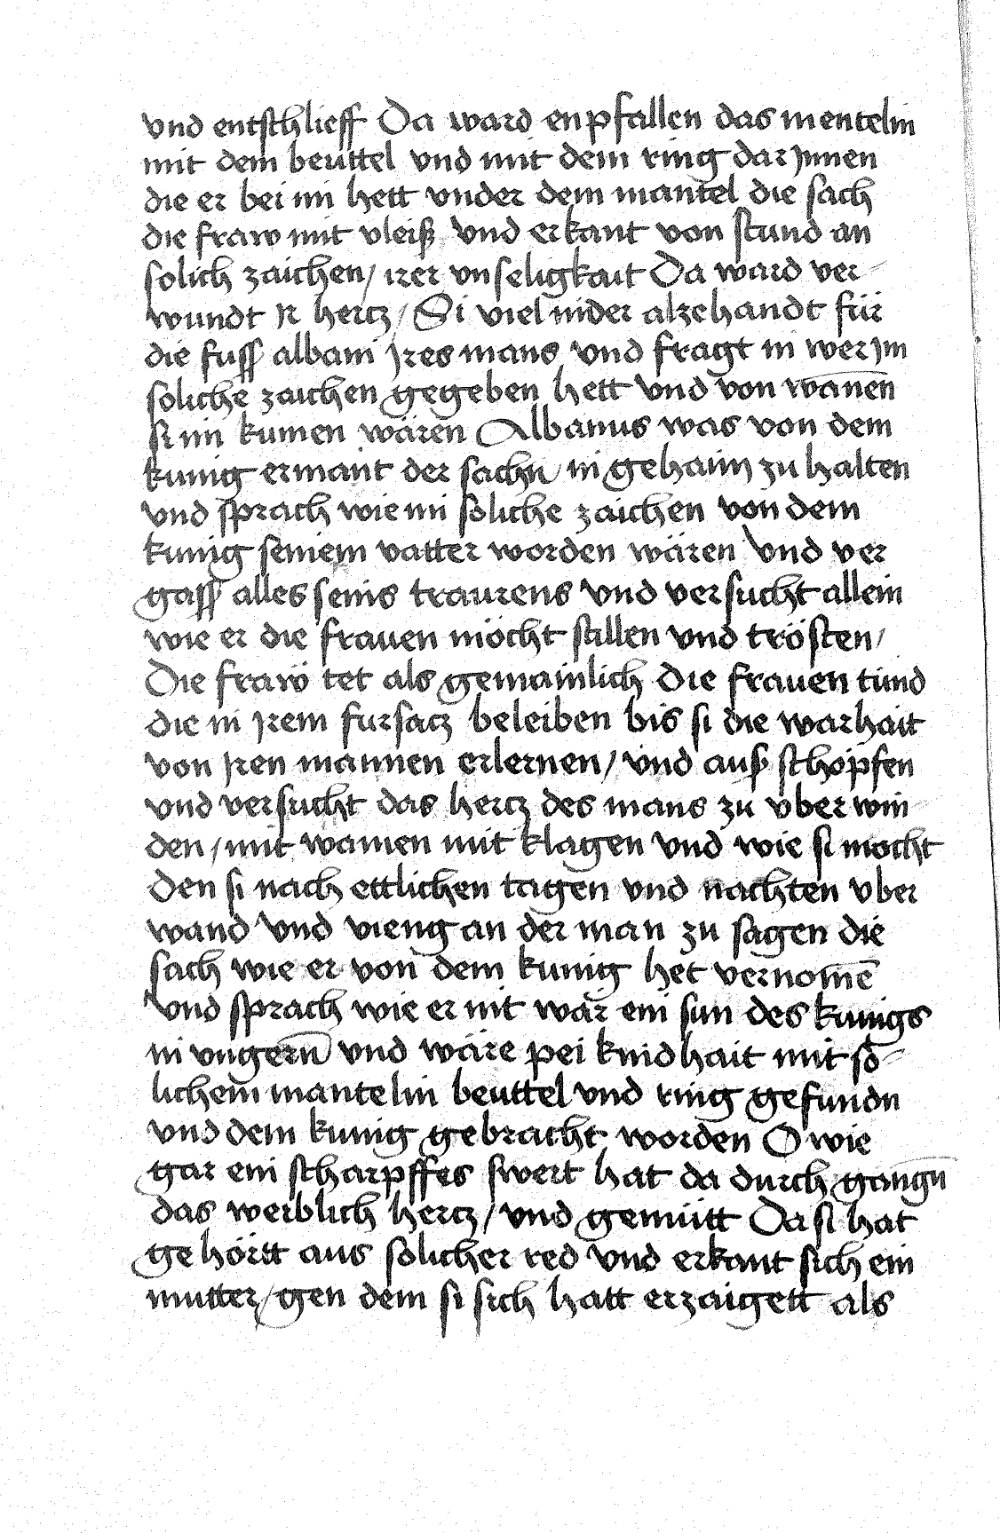 vnd entschlieff Da ward enpfallen das mentelin
mit dem beuttel vnd mit dem ring dar Jnnen
die er bei im hett vnder dem mantel die sach
die fraw mit vleiß vnd erkant von stund an
solich zaichen/ irer vnseligkait Da ward ver-
wundt Jr hertz/ Si viel nider alzehandt für
die fuss albani Jres mans vnd fragt in wer Jm
soliche zaichen gegeben hett vnd von wānen
si im kumen wären Albanus was von dem
kunig ermant der sachn in gehaim zu halten
vnd sprach wie im soliche zaichen von dem
kunig seinem vatter worden wären vnd ver
gass alles seins traurens vnd versucht allein
wie er die frauen möcht stillen vnd trösten/
Die fraw tet als gemainlich die frauen tund
die in Jrem fursatz beleiben bis si die warhait
von Jren mannen erlernen/ vnd auß schöpfen
vnd versucht das hertz des mans zu vber win-
den/ mit wainen mit klagen vnd wie si mocht
den si nach ettlichen tagen vnd nachten vber
wand vnd vieng an der man zu sagen die
sach wie er von dem kunig het vernomē
vnd sprach wie er nit wär ein sun des kunigs
in vngern̄ vnd wäre pei kindhait mit so-
lichem mantelin beuttel vnd ring gefundn
vnd dem kunig gebracht worden O wie
gar ein scharpffes swert hat da durch gangn̄
das weiblich hertz/ vnd gemütt Da si hat
gehörtt aus solicher red vnd erkant sich ein
mutter/ gen dem si sich hatt erzaigett als